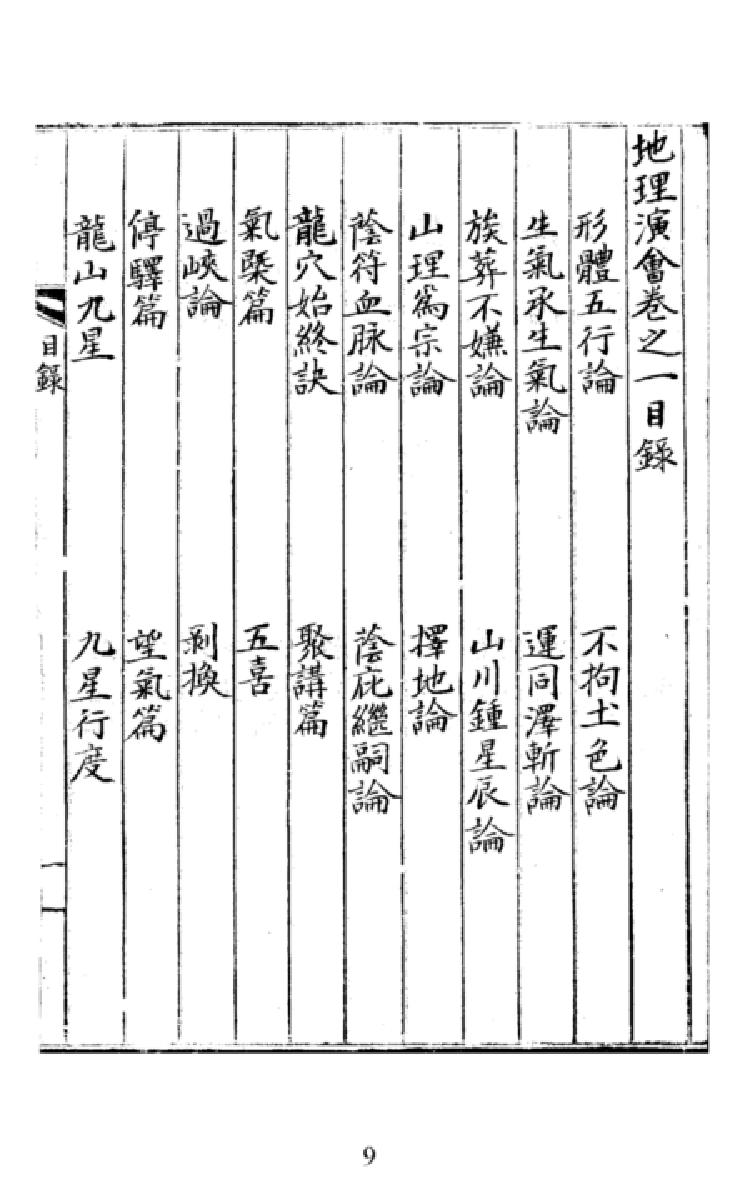 地理演會卷之一目録
形體五行論　不拘土色論
生氣承生氣論　運同澤斬論
族葬不嫌論　山川鍾星辰論
山理爲宗論　擇地論
蔭符血脉論　蔭庇繼嗣論
龍穴始終訣　聚講篇
氣槩篇　五喜
過峽論　剥換
停驛篇　望氣篇
龍山九星　九星行度
目録
一
9